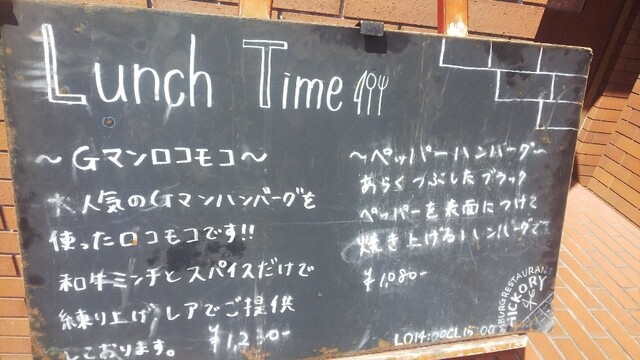 Lunch Time
～Gマンロコモコ～
大人気のGマンハンバーグを
使ったロコモコです!!
和牛ミンチとスパイスだけで
練り上げ レアでご提供
しております。
～ペッパーハンバーグ～
あらくつぶしたブラック
ペッパーを表面につけて
焼き上げるハンバーグです
¥1,080-
BURG RESTAURANT
HICKORY
LO14:00CL15:00